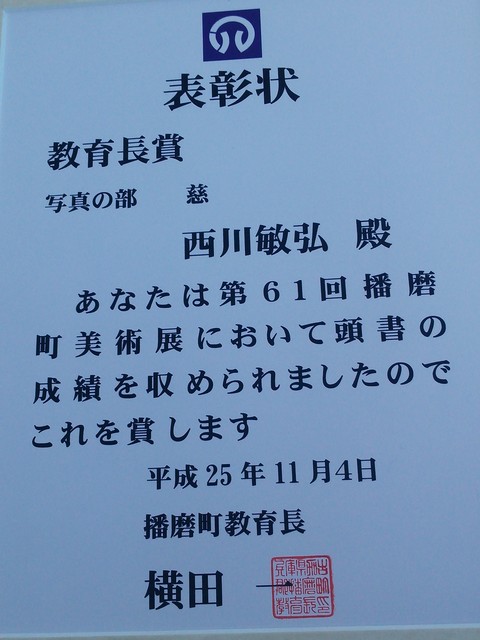 表彰状
教育長賞
写真の部 慈
西川敏弘 殿
あなたは第61回播磨
町美術展において頭書の
成績を収められましたので
これを賞します
平成25年11月4日
播磨町教育長
横田 一